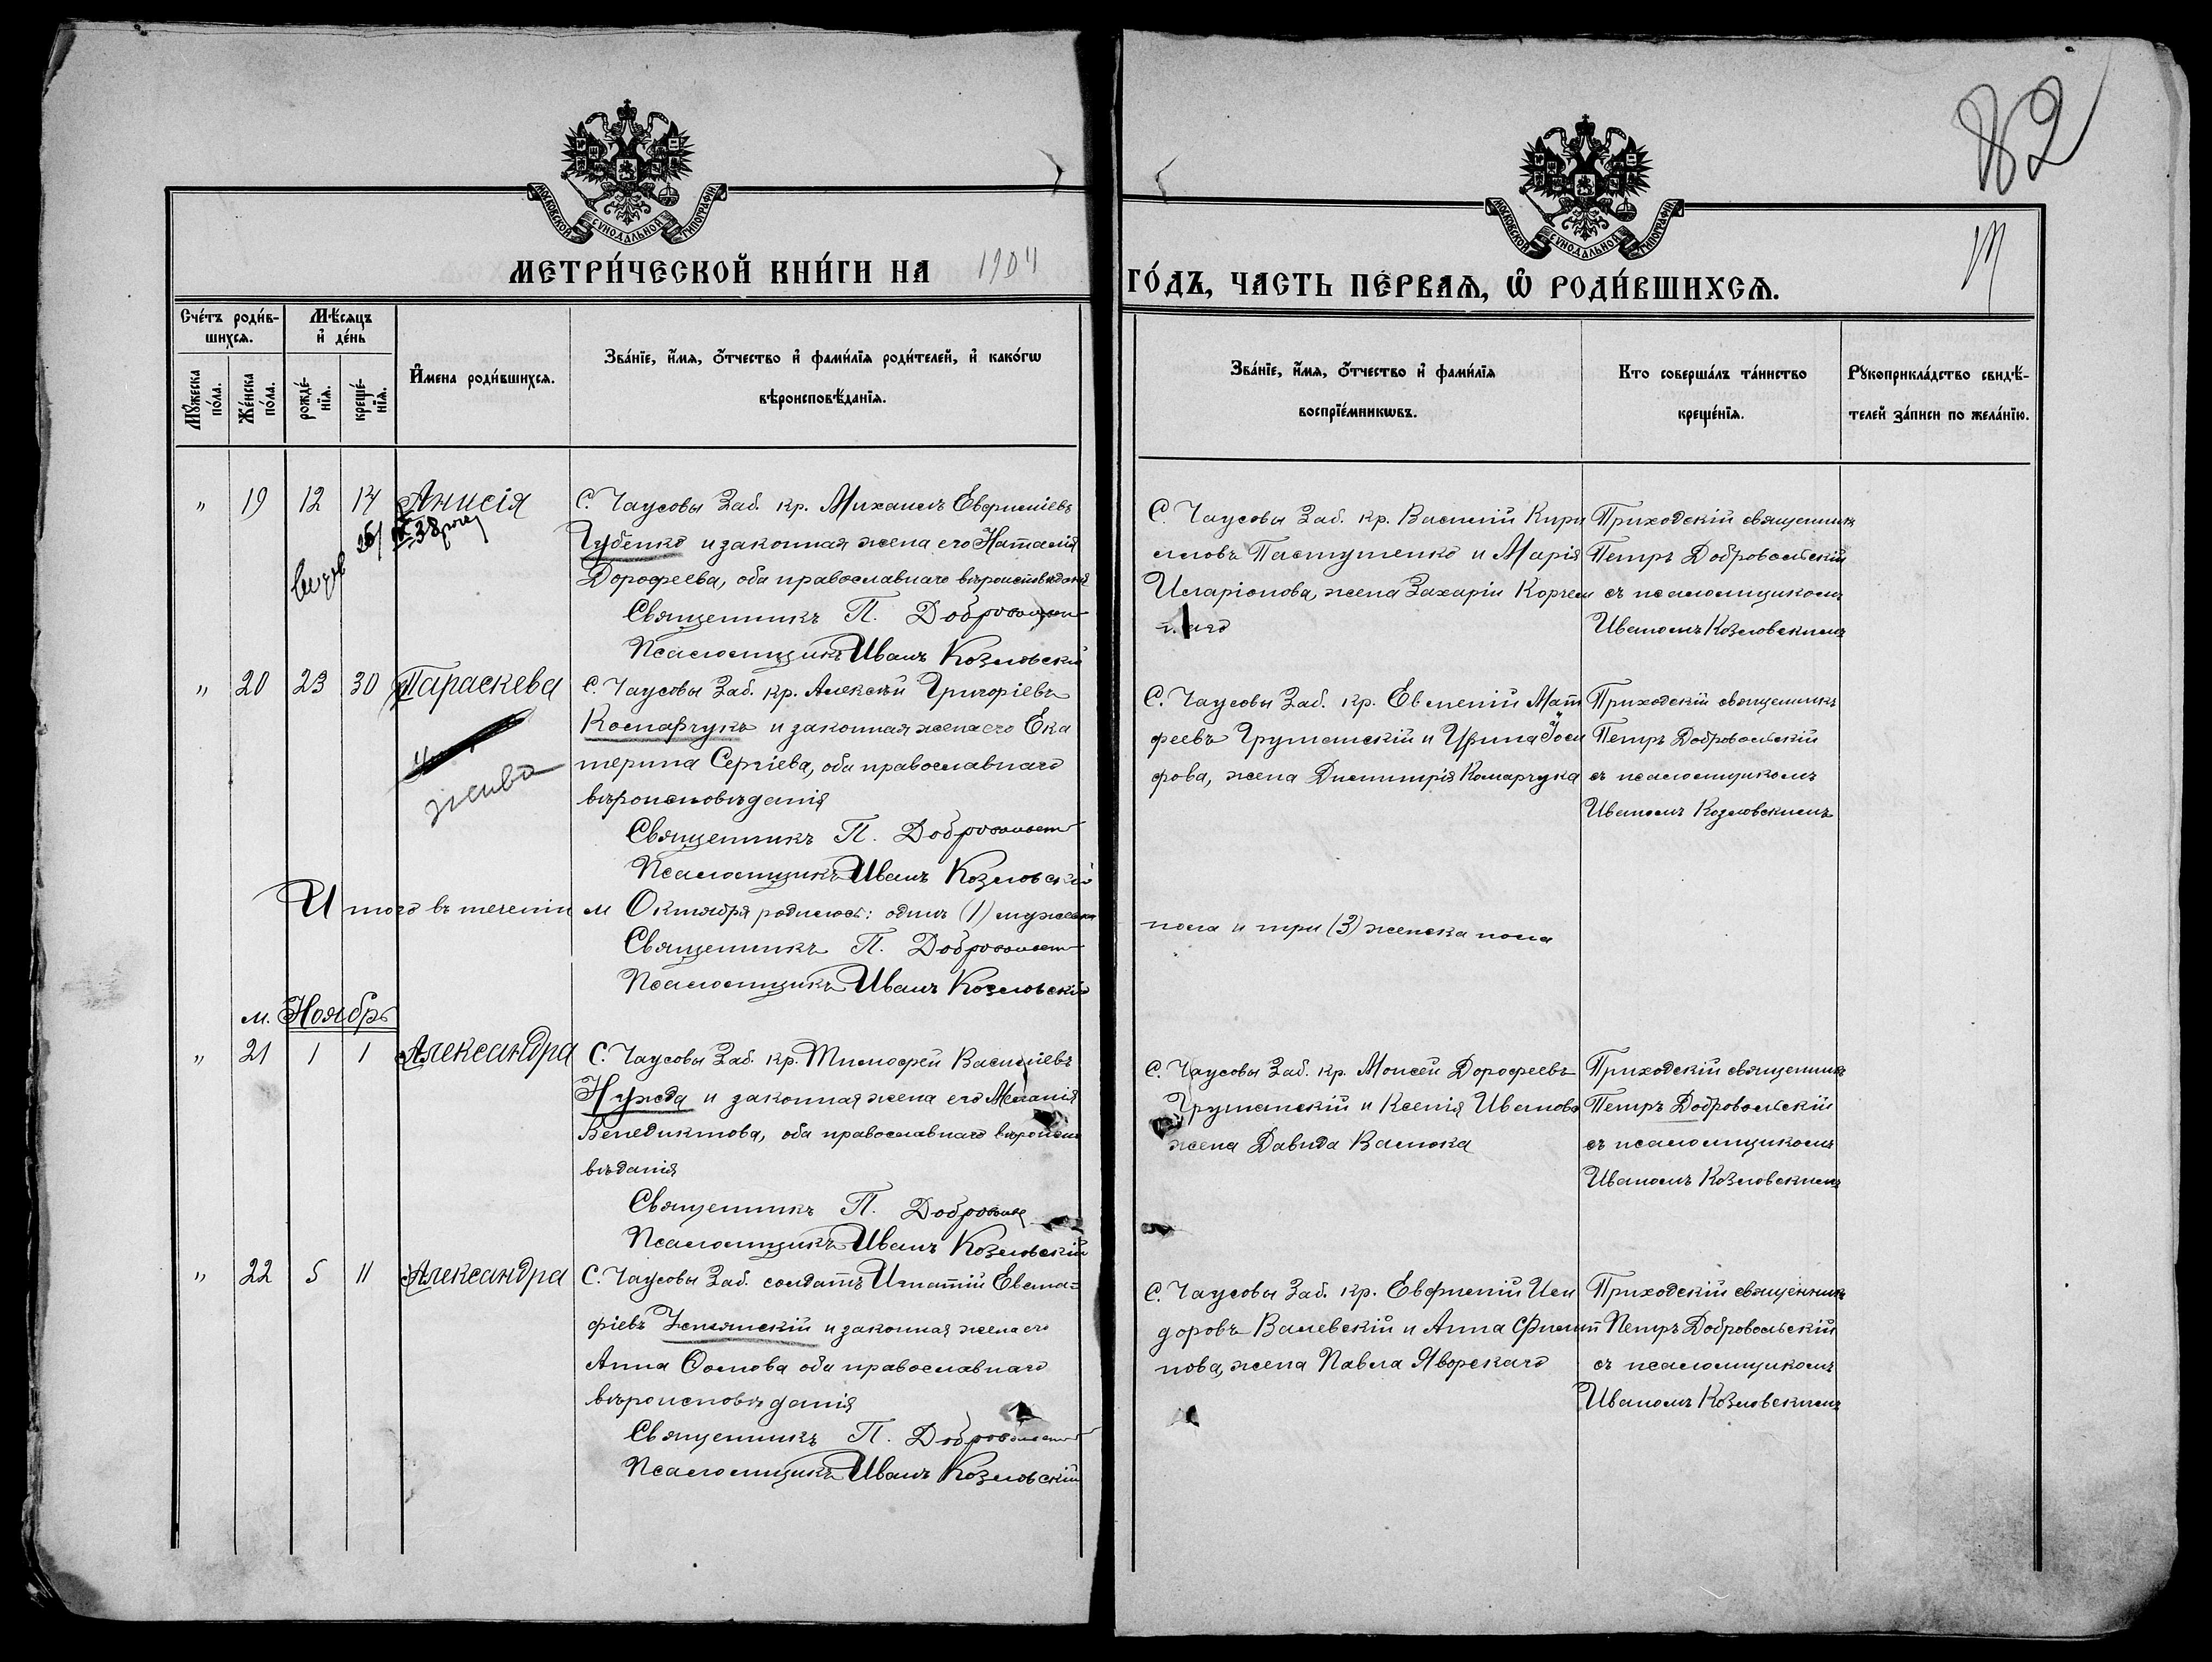 82
МОСКОВСКОЙ СѴНОДАЛЬНОЙ ТИПОГРАФІИ
МОСКОВСКОЙ СѴНОДАЛЬНОЙ ТИПОГРАФІИ
МЕТРИ́ЧЕСКОЙ КНИ́ГИ НА 1904
ГО́ДЪ, ЧАСТЬ ПЕ́РВАѦ, Ѽ РОДИ́ВШИХСѦ.
Сче́тъ роди́в-
шихсѧ.
Мѣ́сѧцъ
и҆ де́нь
Мꙋ́жеска
по́ла.
Же́нска
по́ла.
рожде́-
нїѧ.
креще́-
нїѧ.
И҆мена роди́вшихсѧ.
Зва́нїе, и҆́мѧ, ѻ҆́тчество и҆ фами́лїѧ роди́телей, и҆ како́гѡ
вѣроисповѣ́данїѧ.
Зва́нїе, и҆́мѧ, ѻ҆́тчество и҆ фами́лїѧ
воспрїе́мникѡвъ.
Кто соверша́лъ та́инство
креще́нїѧ.
Рꙋкоприкла́дство свидѣ́-
телей за́писи по жела́нїю.
" 19 12 14 Анисія
С. Чаусовы Заб. кр. Михаилъ Евфиміевъ
Губенко и законная жена его Наталія
Дорофеева, оба православнаго вѣроисповѣданія
Священникъ П. Добровольскій
Псаломщикъ Иванъ Козловскій
С. Чаусовы Заб. кр. Василій Кири
лловъ Пастушенко и Марія
Иларіонова, жена Захаріи
Приходскій священникъ
Петръ Добровольскій
съ псаломщикомъ
Иваномъ Козловскимъ
" 20 23 30 Параскева
жива
С. Чаусовы Заб. кр. Алексѣй Григоріевъ
Комарчукъ и законная жена его Ека
терина Сергіева, оба православнаго
вѣроисповѣданія
Священникъ П. Добровольскій
Псаломщикъ Иванъ Козловскій
С. Чаусовы Заб. кр. Евменій Мат
феевъ Грушанскій и Ирина Іоси
фова, жена Димитрія Комарчука
Приходскій священникъ
Петръ Добровольскій
съ псаломщикомъ
Иваномъ Козловскимъ
Итого въ теченіи м Октября родилось: одинъ (1) мужеска
пола и три (3) женска пола
Священникъ П. Добровольскій
Псаломщикъ Иванъ Козловскій
м. Ноябрь
" 21 1 1 Александра
С. Чаусовы Заб. кр. Тимофей Василіевъ
Нужда и законная жена его Меланія
Венедиктова, оба православнаго вѣроиспо
вѣданія
Священникъ П. Добровольскій
Псаломщикъ Иванъ Козловскій
С. Чаусовы Заб. кр. Моисей Дорофеевъ
Грушанскій и Ксенія Иванова
жена Давида Валюка
Приходскій священникъ
Петръ Добровольскій
съ псаломщикомъ
Иваномъ Козловскимъ
" 22 5 11 Александра
С. Чаусовы Заб. солдатъ Игнатій Евста-
фіевъ и законная жена его
Анна Фомова оба православнаго
вѣроисповѣданія
Священникъ П. Добровольскій
Псаломщикъ Иванъ Козловскій
С. Чаусовы Заб. кр. Евфимій Иси
доровъ Валевскій и Анна Филип
пова, жена Павла Яворскаго
Приходскій священникъ
Петръ Добровольскій
съ псаломщикомъ
Иваномъ Козловскимъ